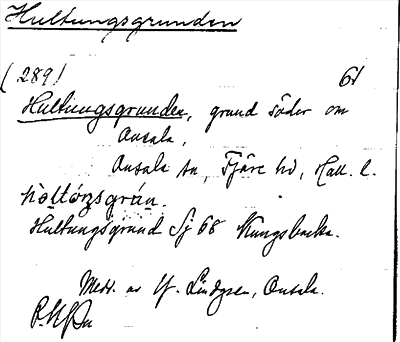 Hultungsgrunden
(289) 61
Hultungsgrunden, grund söder om
Onsala,
Onsala sn, Fjäre hd, Hall. l.
Hultungsgrund Sj 68 Kungsbacka.
Medd. av Lindgren, Onsala.